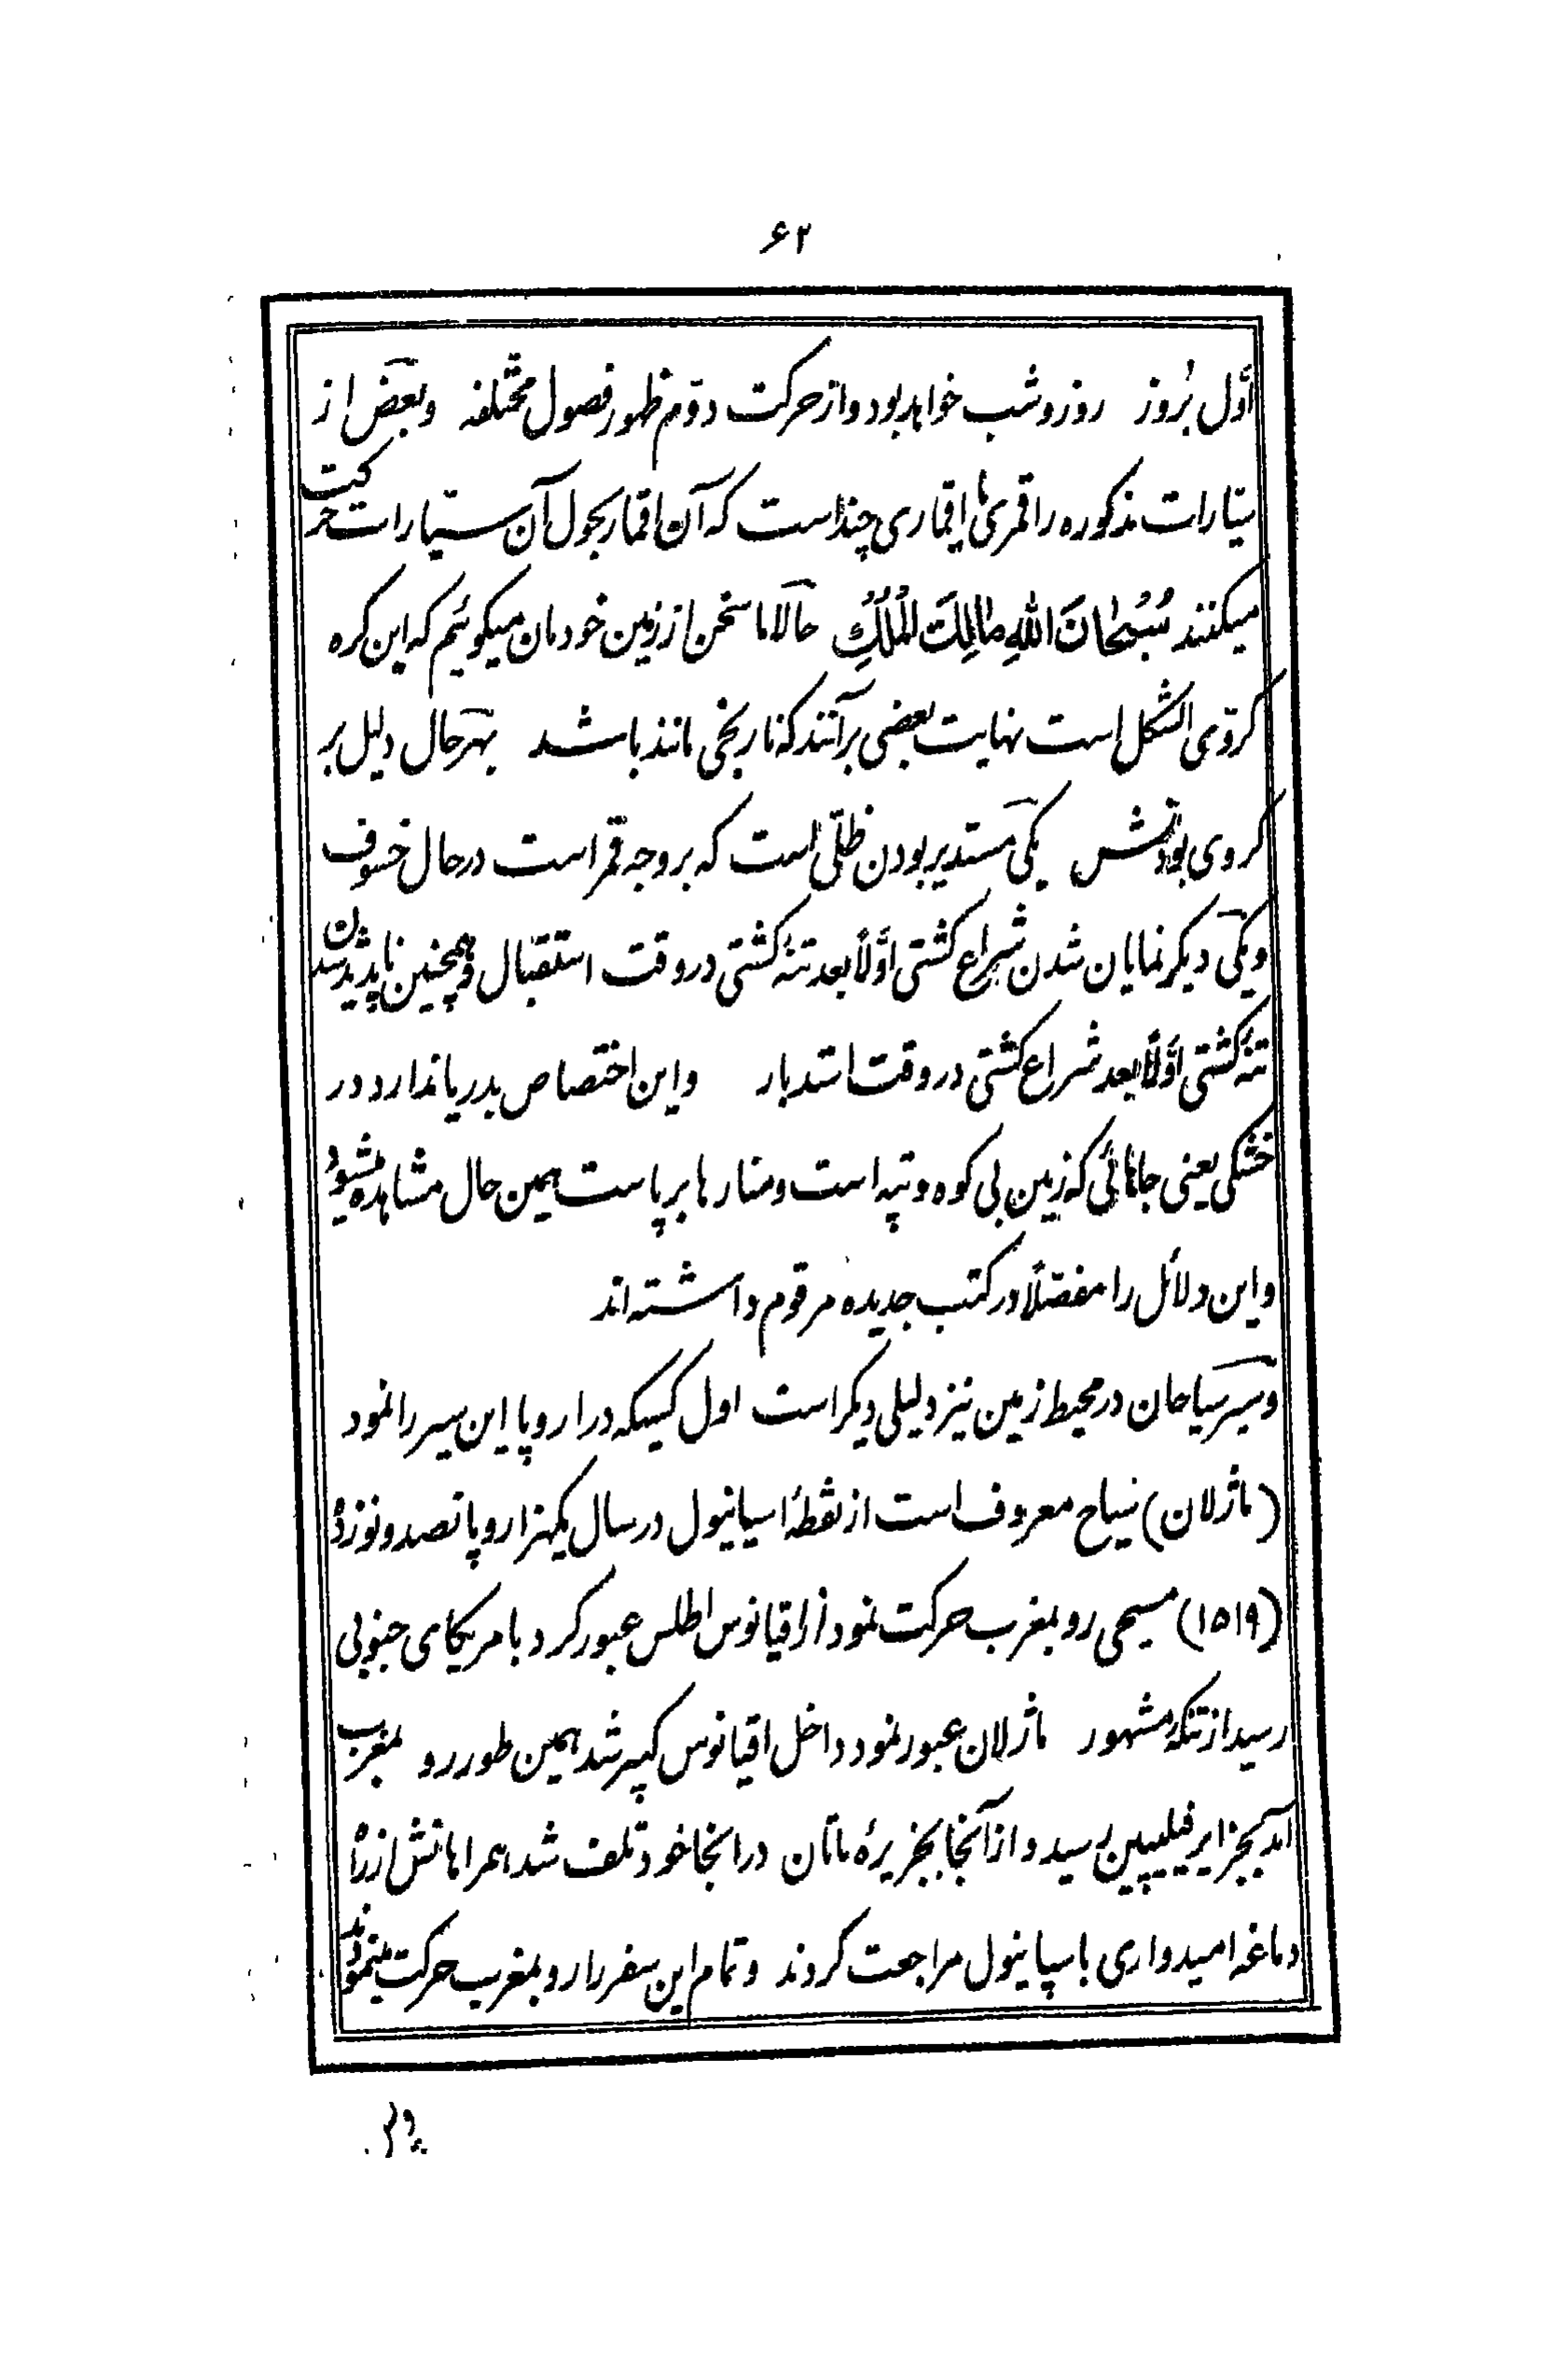 ۶۲
أوّل بُروز روز و شب خواهد بود و از حرکت دوّم ظهور فصول مختلفه وبعض از
سیّارات مذکوره را قمری یا اقماری چند است که آن اقمار بحول آن سیّارات حرکت
میکنند سُبْحٰانَ اللهِ مٰالِكَ الْمُلْكِ حالا ما سخن از زمین خودمان میکوئیم که این کره
کروّی الشکل است نهایت بعضی برآنند که نارنجی مانند باشد بهرحال دلیل بر
کروی بودنش یکی مستدیر بودن ظلّی است که بر وجه قمر است در حال خسوف
ویکی دیکر نمایان شدن شراع کشتی اوّلاً بعد تنهٔ کشتی در وقت استقبال و همچنین ناپدید شدن
تنهٔ کشتی اوّلاً بعد شراع کشتی در وقت استدبار واین اختصاص بدریا ندارد در
خشکی یعنی جاهائی که زمین بی کوه و تپه است و منارها برپاست همین حال مشاهده میشود
واین دلائل را مفصّلاً در کتب جدیده مرقوم داشته اند
وسیر سیاحان در محیط زمین نیز دلیلی دیکر است اول کسیکه در اروپا این سیر را نمود
(ماژلان) سیاح معروف است از نقطهٔ اسپانیول در سال یکهزار و پانصد و نوزده
(۱۵۱۹) مسیحی رو بمغرب حرکت نمود از اقیانوس اطلس عبور کرد بامریکای جنوبی
رسید از تنکهٔ مشهور ماژلان عبور نمود داخل اقیانوس کبیر شد همین طور رو بمغرب
آمد بجزایر فیلیپین رسید و از آنجا بجزیرهٔ ماتان در انجا خود تلف شد همراهانش از راه
دماغهٔ امیدواری باسپانیول مراجعت کردند وتمام این سفر را رو بمغرب حرکت مینمودند